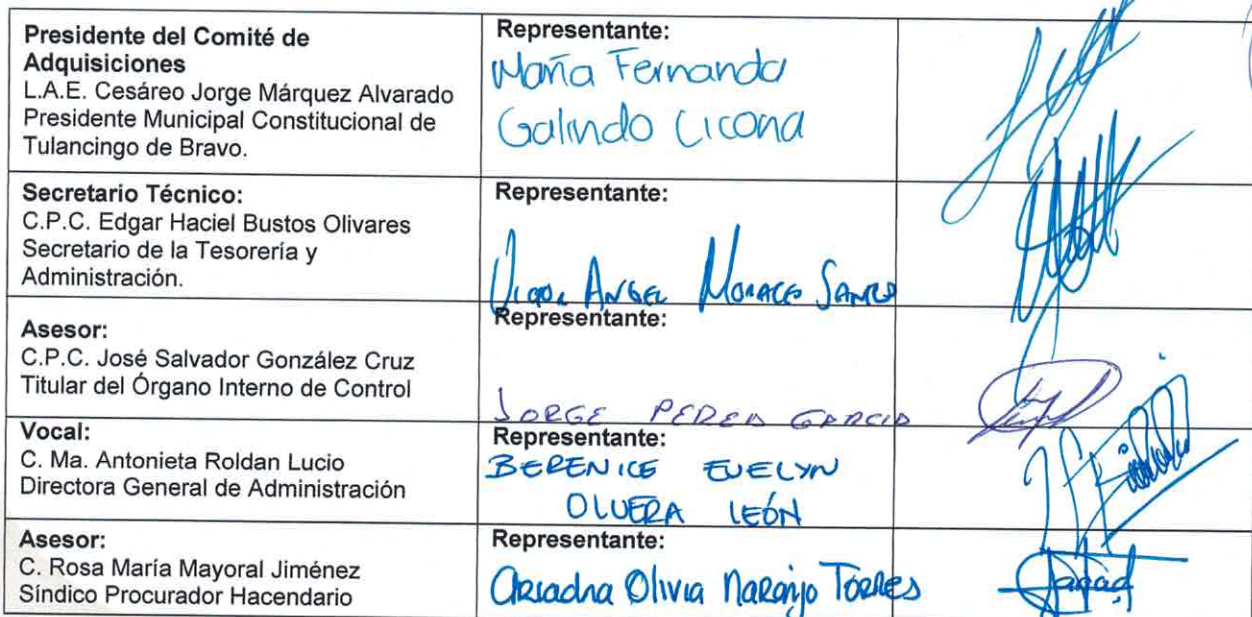 Presidente del Comité de
Adquisiciones
L.A.E. Cesáreo Jorge Márquez Alvarado
Presidente Municipal Constitucional de
Tulancingo de Bravo.
Representante:
María Fernanda
Galindo Licona
Secretario Técnico:
C.P.C. Edgar Haciel Bustos Olivares
Secretario de la Tesorería y
Administración.
Representante:
Angel Morales
Asesor:
C.P.C. José Salvador González Cruz
Titular del Órgano Interno de Control
Representante:
JORGE PEREA GARCIA
Vocal:
C. Ma. Antonieta Roldan Lucio
Directora General de Administración
Representante:
BERENICE EVELYN
OLVERA LEÓN
Asesor:
C. Rosa María Mayoral Jiménez
Síndico Procurador Hacendario
Representante:
Ariadna Olivia Naranjo Torres